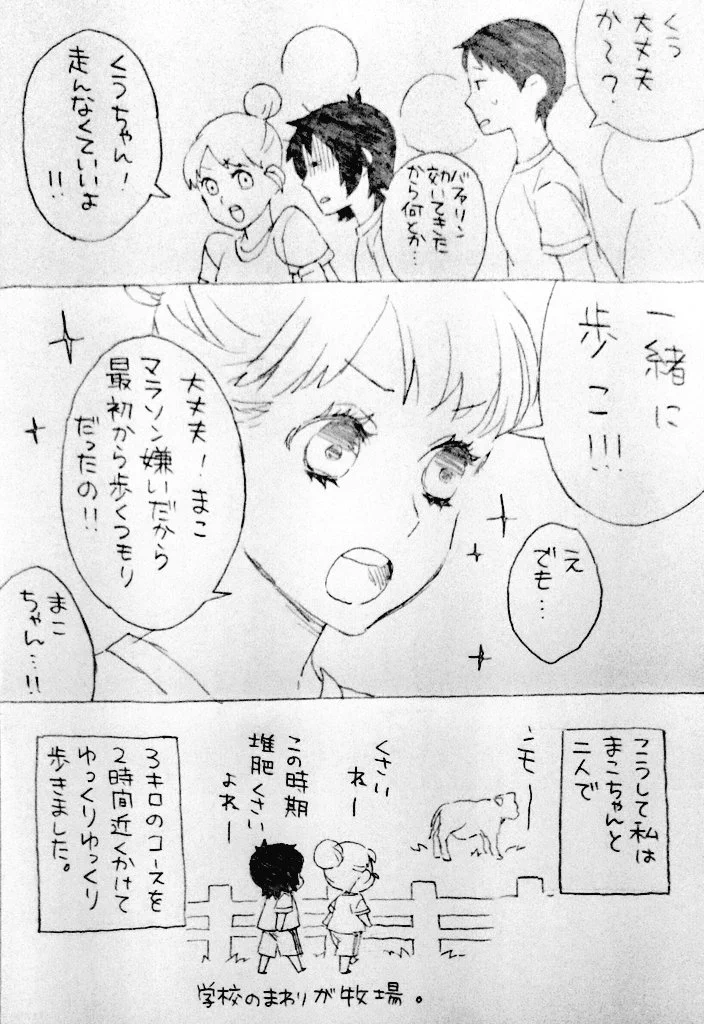 くう
大丈夫
かて?
バファリン
効いてきた
から何とか…
くうちゃん!
走んなくていいよ
!!
一緒に
歩こ!!!
え
でも…
大丈夫!まこ
マラソン嫌いだから
最初から歩くつもり
だったの!!
まこ
ちゃん…!!
こうして私は
まこちゃんと
二人で
ンモー
くさい
ねー
この時期
堆肥くさい
よねー
3キロのコースを
2時間近くかけて
ゆっくりゆっくり
歩きました。
学校のまわりが牧場。